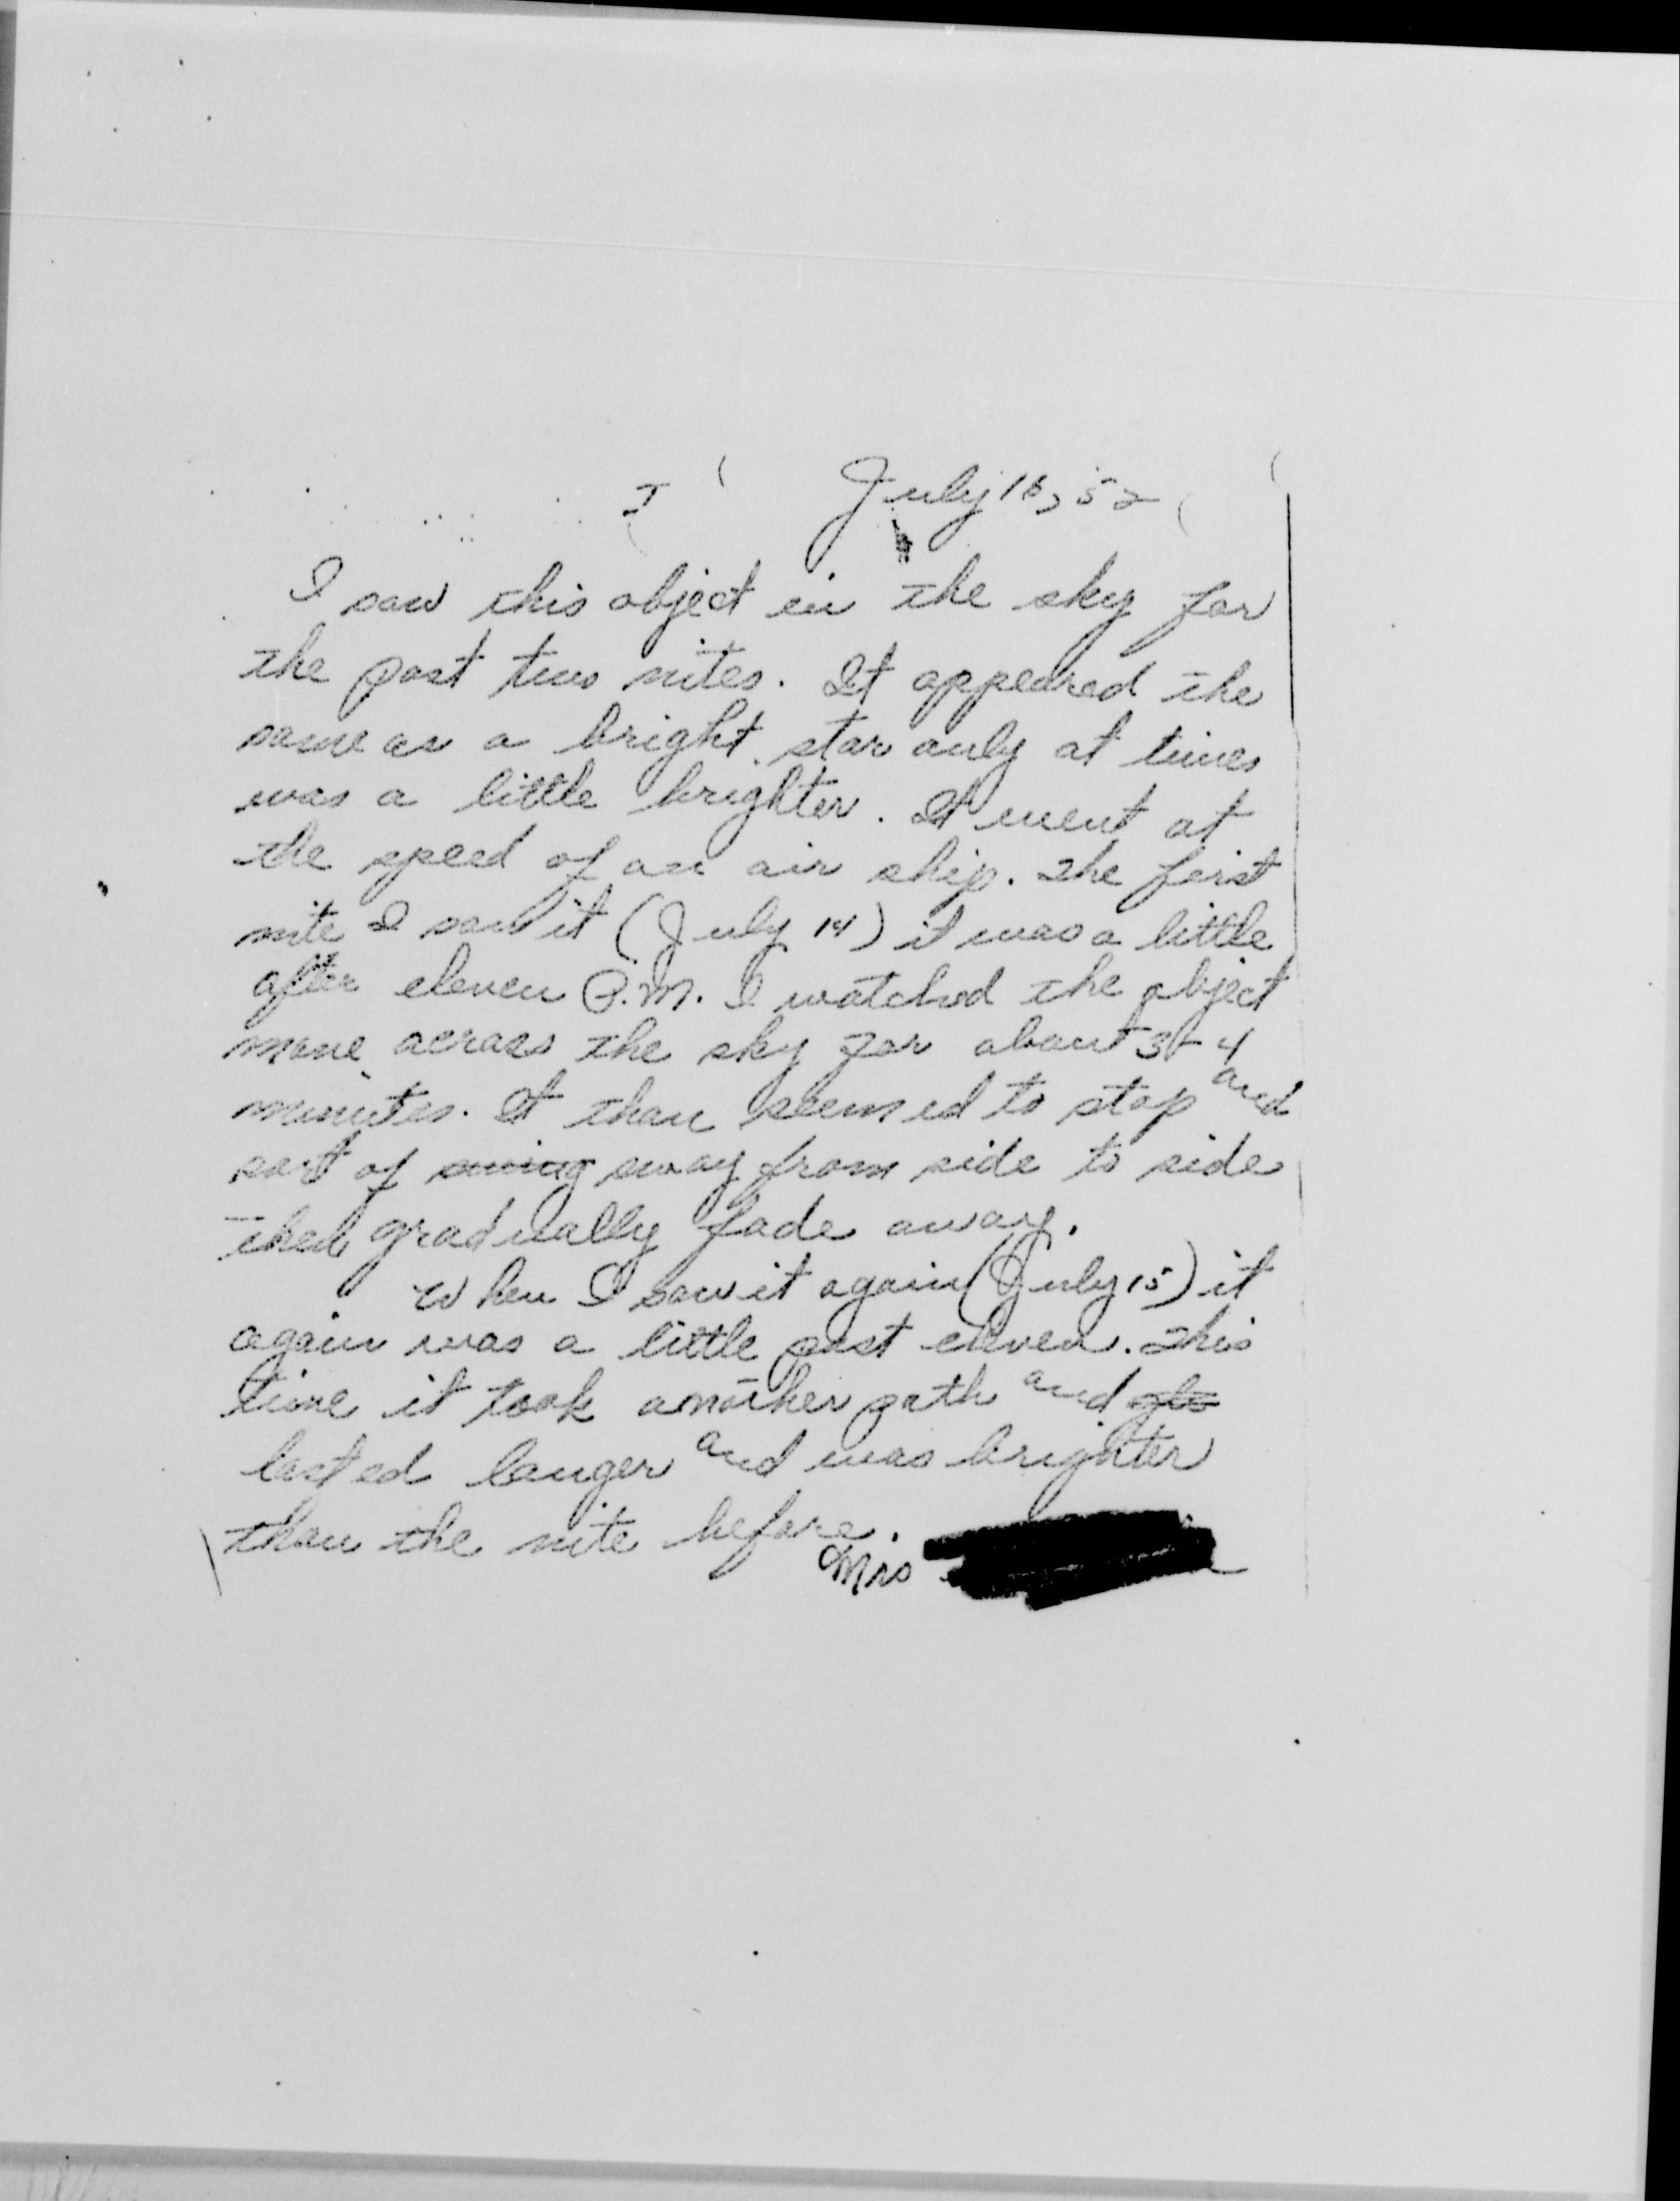 I July 16, 52
I saw this object in the sky for
the past two nites. It appeared the
same as a bright star only at times
was a little brighter. It went at
the speed of an air ship. The first
nite I saw it (July 14) it was a little
after eleven P.M. I watched the object
move across the sky for about 3 - 4
minutes. It than seemed to stop and
sort of swing sway from side to side
then gradually fade away.
When I saw it again (July 15) it
again was a little past eleven. This
time it took another path and
lasted longer and was brighter
than the nite before.
Mrs